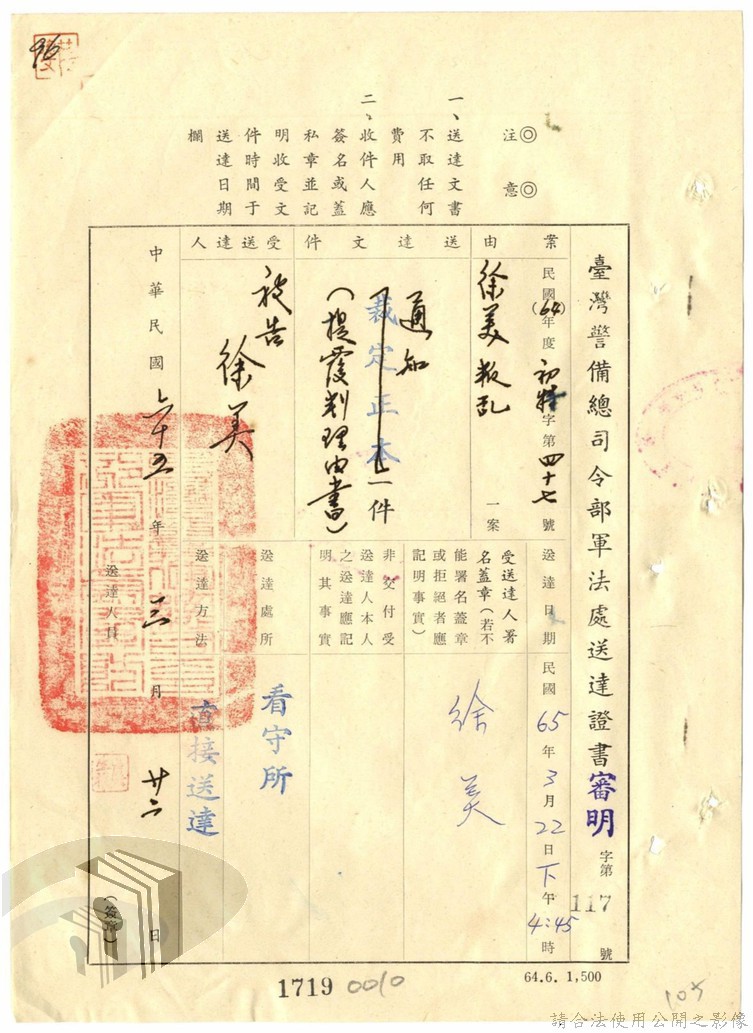 臺灣警備總司令部軍法處送達證書審明字第117號
◎注意◎
一、送達文書不取任何費用
二、收件人應簽名或蓋私章並記明收受文件時間于送達日期欄
案由
民國(64)年度初特字第四十七號
徐美叛乱一案
送達文件
通知
裁定正本一件
(提覆判理由書)
受送達人
被告徐美
送達日期
民國65年3月22日下午4:45時
受送達人署名蓋章(若不能署名蓋章或拒絕者應記明事實)
徐美
非交付受送達人本人之送達應記明其事實
送達處所
看守所
送達方法
直接送達
中華民國六十五年三月廿二日
送達人員
(簽章)
64.6. 1,500
1719 0010
105
請合法使用公開之影像